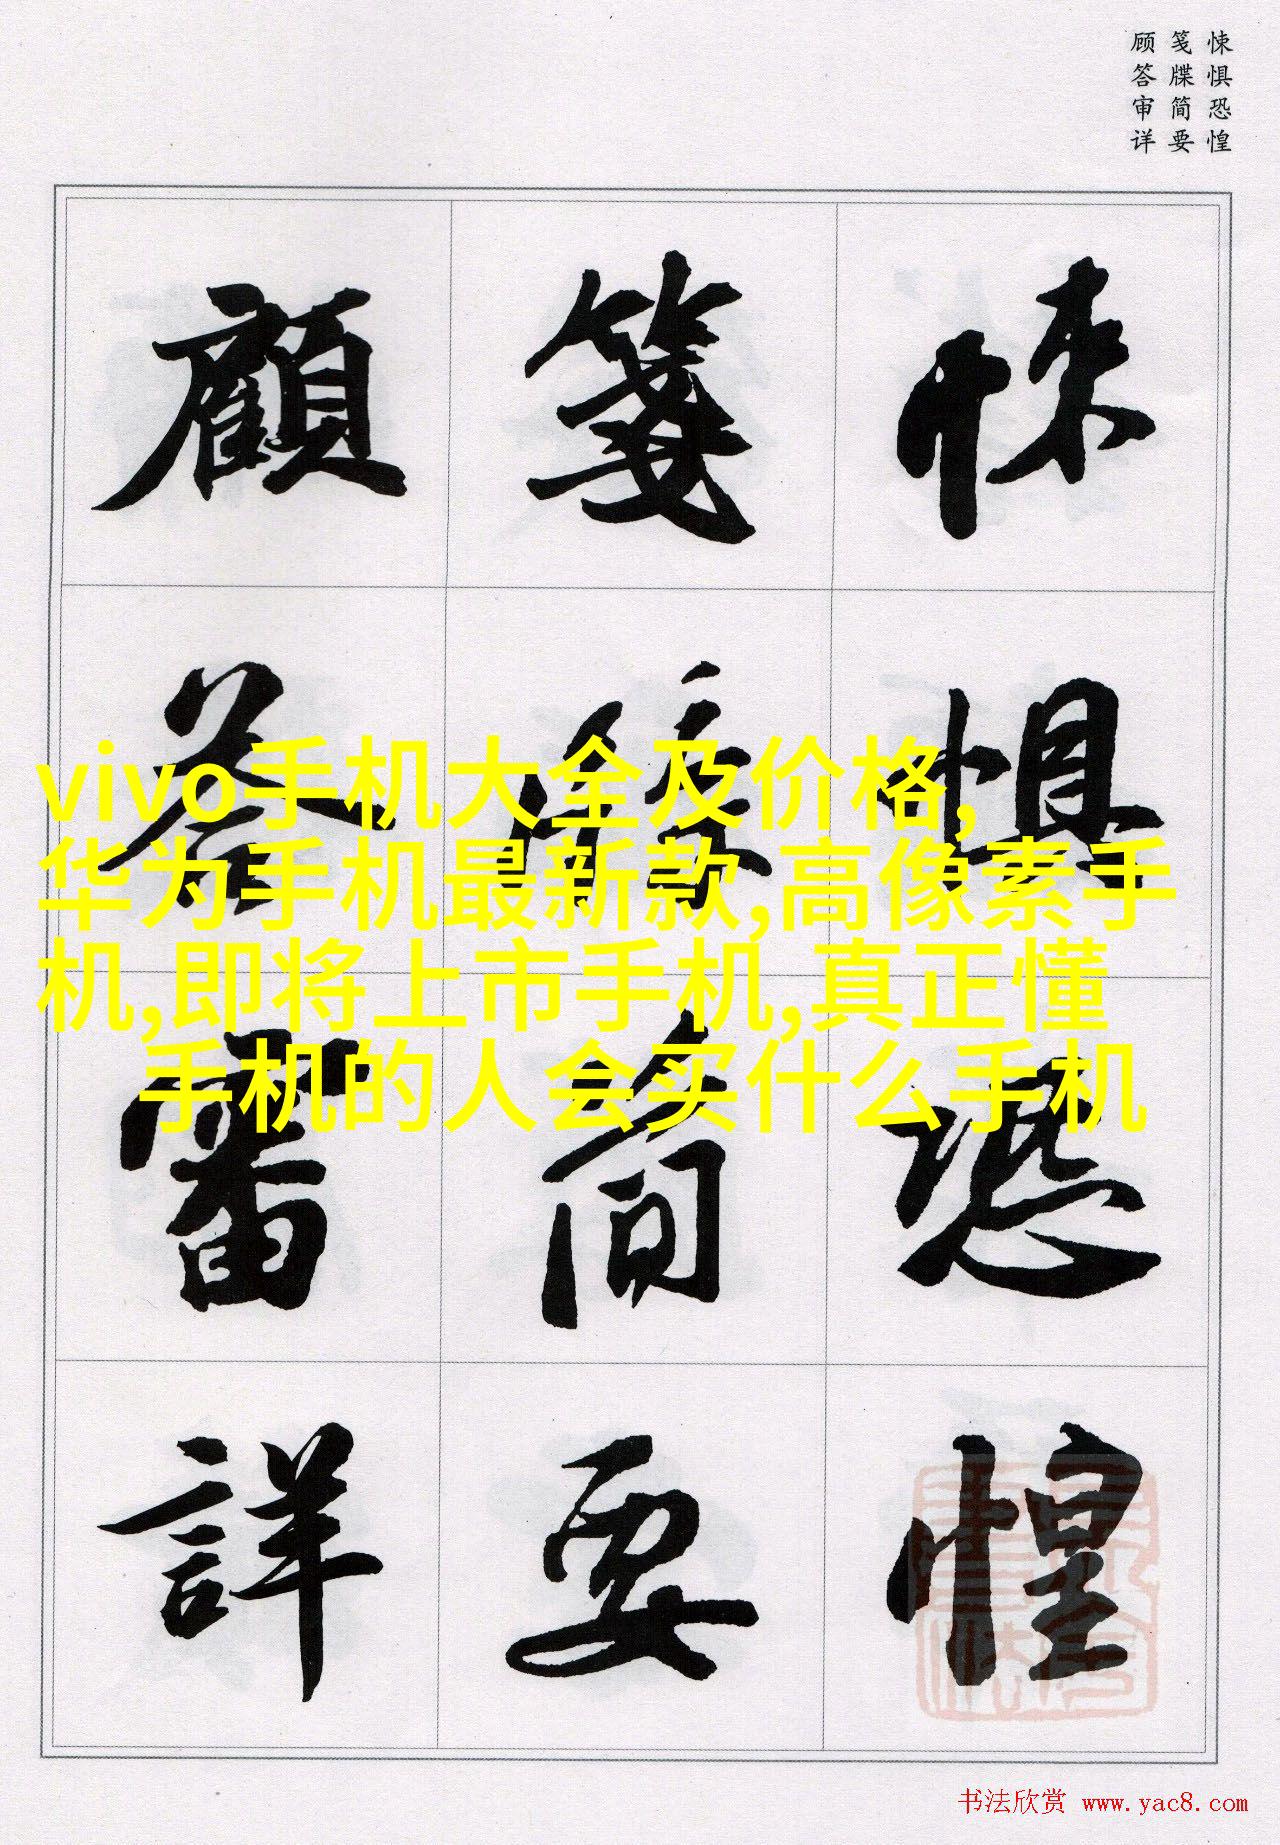 悚惧恐惶
笺牒简要
顾答审详
悚惧恐惶
箋牒簡要
顧答審詳
vivo手机大全及价格,
华为手机最新款,高像素手
机,即将上市手机,真正懂
手机的人会买什么手机
书法欣赏 www.yac8.com